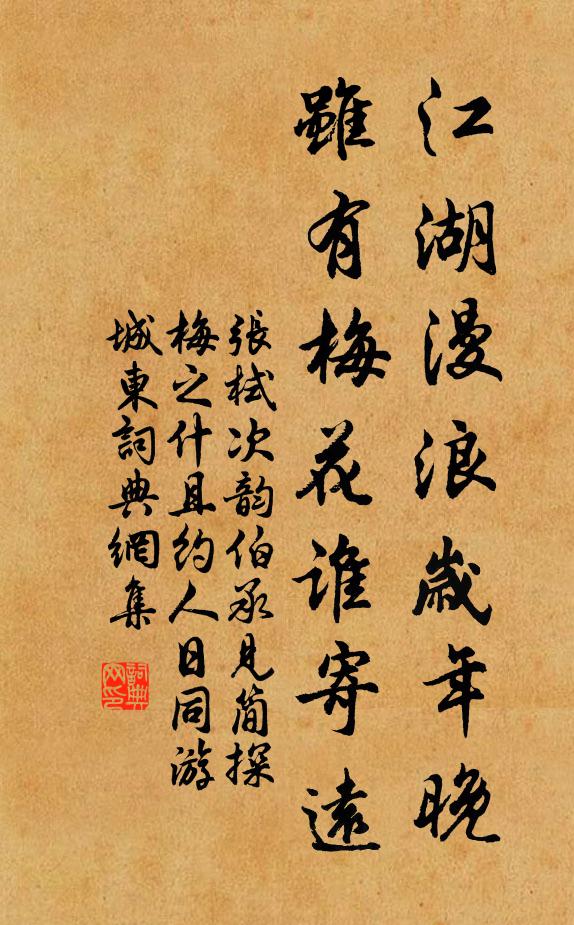 江湖漫浪歲年晚
雖有梅花誰寄遠
張栻次韵伯承見簡探
梅之什且約人日同游
城東詞典網集
詞典网印